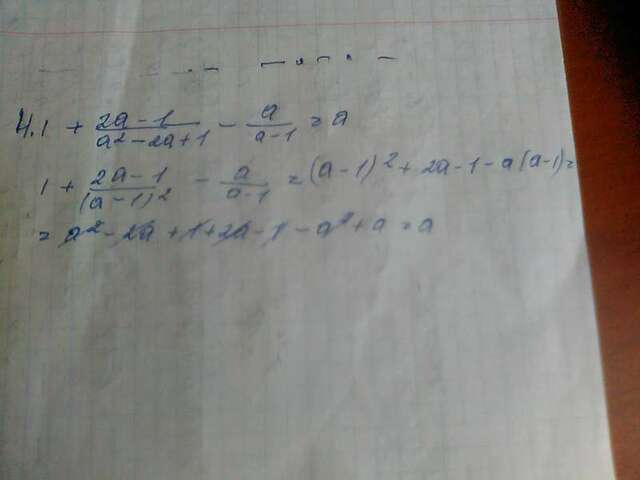 4. 1 + (2a - 1)/(a² - 2a + 1) - a/(a - 1) = a
1 + (2a - 1)/(a - 1)² - a/(a - 1) = (a - 1)² + 2a - 1 - a(a - 1) =
= a² - 2a + 1 + 2a - 1 - a² + a = a